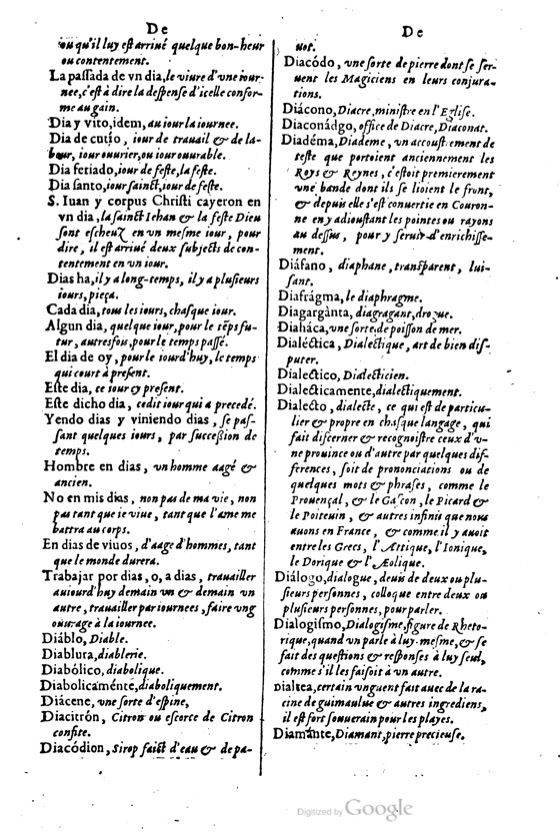 De
ou qu'il luy est arriué quelque bon-heur
ou contentement.
La passada de vn dia, le viure d'vne iour-
nee, c'est à dire la despense d'icelle confor-
me au gain.
Dia y vito, idem, au iour la iournee.
Dia de cutio, iour de trauail & de la-
beur, iour ouurier, ou iour ouurable.
Dia feriado, iour de feste, la feste.
Dia santo, iour sainct, iour de feste.
S. Iuan y corpus Christi cayeron en
vn dia, la sainct Iehan & la feste Dieu
sont escheuz en vn mesme iour, pour
dire, il est arriué deux subjects de con-
tentement en vn iour.
Dias ha, il y a long-temps, il y a plusieurs
iours, pieça.
Cada dia, tous les iours, chasque iour.
Algun dia, quelque iour, pour le tẽps fu-
tur, autresfou, pour le temps passé.
El dia de oy, pour le iourd'huy, le temps
qui court à present.
Este dia, ce iour cy present.
Este dicho dia, cedit iour qui a precedé.
Yendo dias y viniendo dias, se pas-
sant quelques iours, par succession de
temps.
Hombre en dias, vn homme aagé &
ancien.
No en mis dias, non pas de ma vie, non
pas tant que ie viue, tant que l'ame me
battra au corps.
En dias de viuos, d'aage d'hommes, tant
que le monde durera.
Trabajar por dias, o, a dias, trauailler
auiourd'huy demain vn & demain vn
autre, trauailler par iournees, faire vng
ouurage à la iournee.
Diáblo, Diable.
Diablura, diablerie.
Diabólico, diabolique.
Diabolicaménte, diaboliquement.
Diácene, vne sorte d'espine,
Diacitrón, Citron ou escorce de Citron
confite.
Diacódion, Sirop faict d'eau & de pa-
De
uot.
Diacódo, vne sorte de pierre dont se ser-
uent les Magiciens en leurs conjura-
tions.
Diácono, Diacre, ministre en l'Eglise.
Diaconádgo, office de Diacre, Diaconat.
Diadéma, Diademe, vn accoustrement de
teste que portoient anciennement les
Roys & Reynes, c'estoit premierement
vne bande dont ils se lioient le front,
& depuis elle s'est conuertie en Couron-
ne en y adioustant les pointes ou rayons
au dessus, pour y seruir d'enrichisse-
ment.
Diáfano, diaphane, transparent, lui-
sant.
Diafrágma, le diaphragme.
Diagargànta, diagragant, drogue.
Diaháca, vne sorte de poisson de mer.
Dialéctica, Dialectique, art de bien dis-
puter.
Dialectico, Dialecticien.
Dialecticamente, dialectiquement.
Dialecto, dialecte, ce qui est de particu-
lier & propre en chasque langage, qui
fait discerner & recognoistre ceux d'v-
ne prouince ou d'autre par quelques dif-
ferences, soit de prononciations ou de
quelques mots & phrases, comme le
Prouençal, & le Gascon, le Picard &
le Poiteuin, & autres infinis que nous
auons en France, & comme il y auoit
entre les Grecs, l'Attique, l'Ionique,
le Dorique & l'Æolique.
Diálogo, dialogue, deuis de deux ou plu-
sieurs personnes, colloque entre deux ou
plusieurs personnes, pour parler.
Dialogismo, Dialogisme, figure de Rheto-
rique, quand vn parle à luy-mesme, & se
fait des questions & responses à luy seul,
comme s'il les faisoit à vn autre.
Dialtea, certain vnguent fait auec de la ra-
cine de guimaulue & autres ingrediens,
il est fort souuerain pour les playes.
Diamánte, Diamant, pierre precieuse.
Digitized by Google